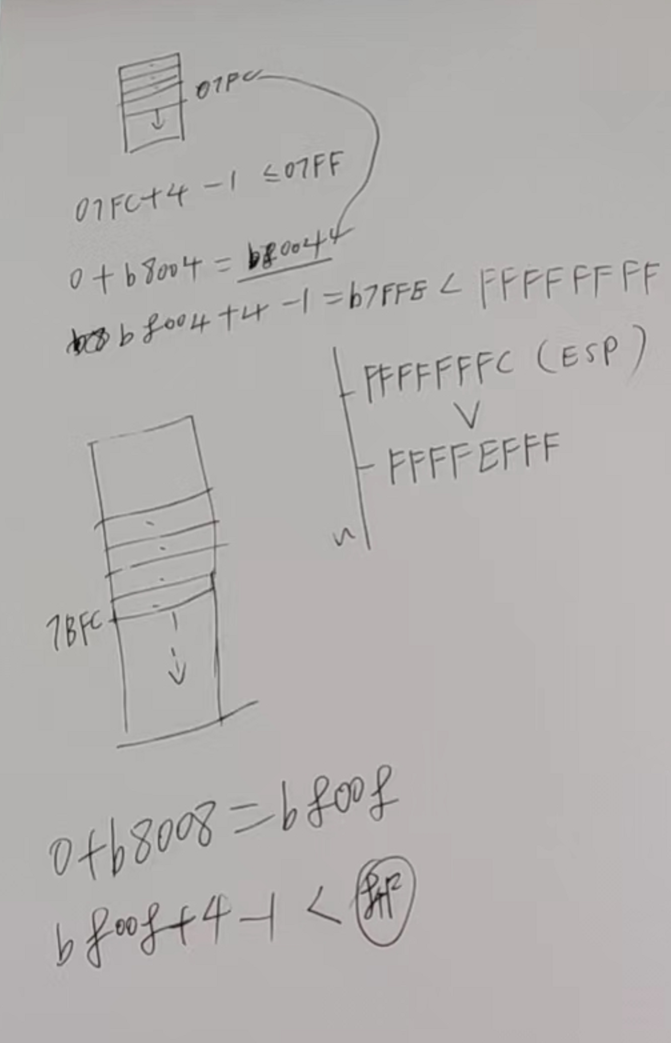 07FC
07FC+4-1 ≤07FF
0+b8004=b80044
b8004+4-1=b7FFE < FFFFFFFF
FFFFFFFC (ESP)
V
FFFFEFFF
7BFC
0+b8008=b8008
b8008+4-1 <